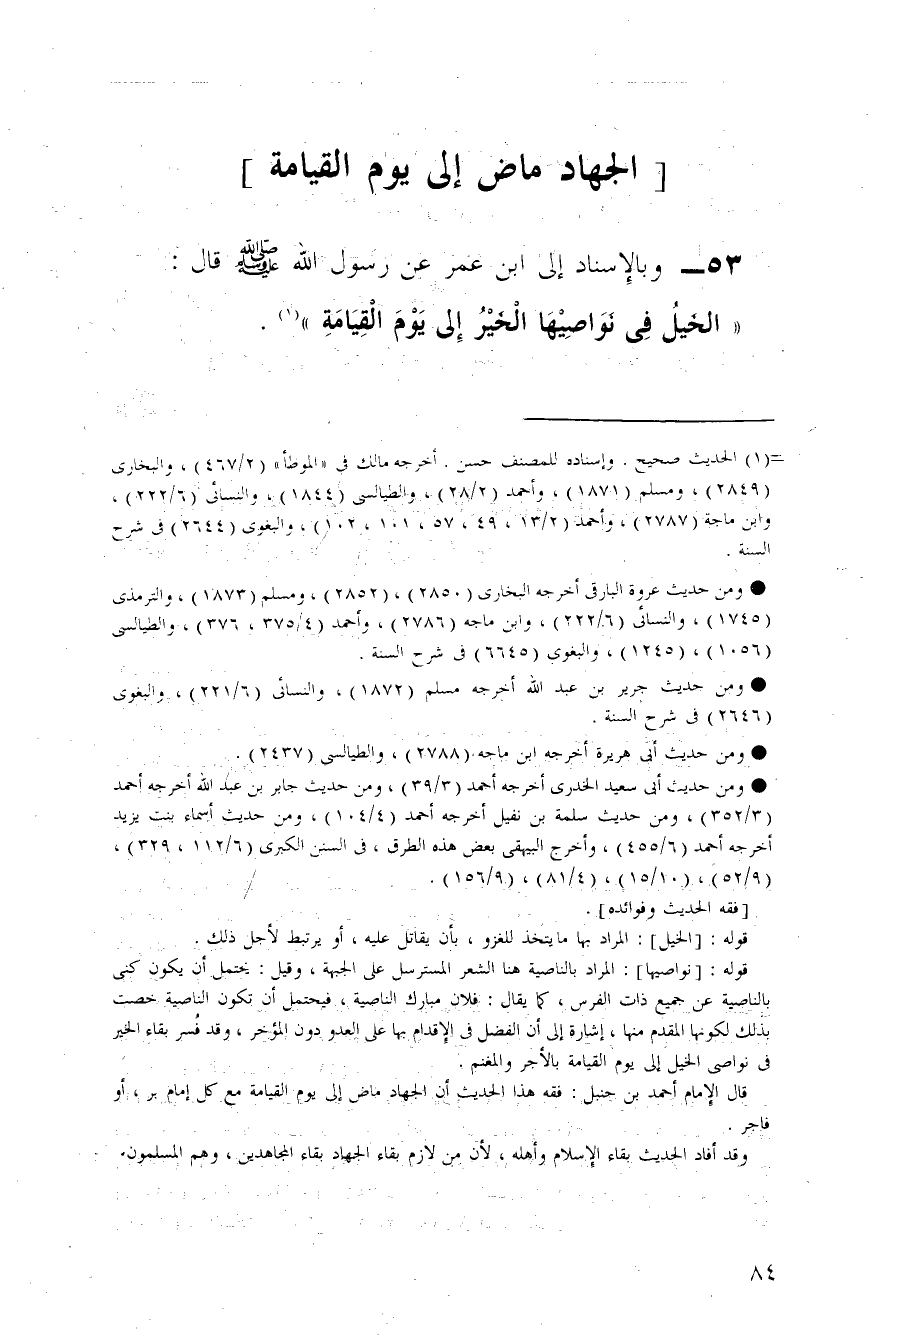 [ الجهاد ماض إلى يوم القيامة ]
٥٣ــ وبالإسناد إلى ابن عمر عن رسول الله ﷺ قال :
« الخَيلُ فِى نَوَاصِيْهَا الْخَيْرُ إِلى يَوْمَ الْقِيَامَةِ »(١) .
=(١) الحديث صحيح . وإسناده للمصنف حسن . أخرجه مالك فى «الموطأ» (٤٦٧/٢) ، والبخارى
(٢٨٤٩) ، ومسلم (١٨٧١) ، وأحمد (٢٨/٢) ، والطيالسى (١٨٤٤) ، والنسائى (٢٢٢/٦) ،
وابن ماجة (٢٧٨٧) ، وأحمد (١٣/٢ ، ٤٩ ، ٥٧ ، ١٠١ ، ١٠٢) ، والبغوى (٢٦٤٤) فى شرح
السنة .
● ومن حديث عروة البارقى أخرجه البخارى (٢٨٥٠) ، (٢٨٥٢) ، ومسلم (١٨٧٣) ، والترمذى
(١٧٤٥) ، والنسائى (٢٢٢/٦) ، وابن ماجه (٢٧٨٦) ، وأحمد (٣٧٥/٤ ، ٣٧٦) ، والطيالسى
(١٠٥٦) ، (١٢٤٥) ، والبغوى (٦٦٤٥) فى شرح السنة .
● ومن حديث جرير بن عبد الله أخرجه مسلم (١٨٧٢) ، والنسائى (٢٢١/٦) ، والبغوى
(٢٦٤٦) فى شرح السنة .
● ومن حديث أبى هريرة أخرجه ابن ماجه (٢٧٨٨) ، والطيالسى (٢٤٣٧) .
● ومن حديث أبى سعيد الخدرى أخرجه أحمد (٣٩/٣) ، ومن حديث جابر بن عبد الله أخرجه أحمد
(٣٥٢/٣) ، ومن حديث سلمة بن نفيل أخرجه أحمد (١٠٤/٤) ، ومن حديث أسماء بنت يزيد
أخرجه أحمد (٤٥٥/٦) ، وأخرج البيهقى بعض هذه الطرق ، فى السنن الكبرى (١١٢/٦ ، ٣٢٩) ،
(٥٢/٩) ، (١٥/١٠) ، (٨١/٤) ، (١٥٦/٩) .
[فقه الحديث وفوائده] .
قوله : [الخيل] : المراد بها مايتخذ للغزو ، بأن يقاتل عليه ، أو يرتبط لأجل ذلك .
قوله : [نواصيها] : المراد بالناصية هنا الشعر المسترسل على الجبهة ، وقيل : يحتمل أن يكون كنى
بالناصية عن جميع ذات الفرس ، كما يقال : فلان مبارك الناصية ، فيحتمل أن تكون الناصية خصت
بذلك لكونها المقدم منها ، إشارة إلى أن الفضل فى الإقدام بها على العدو دون المؤخر ، وقد فُسر بقاء الخير
فى نواصى الخيل إلى يوم القيامة بالأجر والمغنم .
قال الإمام أحمد بن حنبل : فقه هذا الحديث أن الجهاد ماض إلى يوم القيامة مع كل إمام بر ، أو
فاجر .
وقد أفاد الحديث بقاء الإسلام وأهله ، لأن من لازم بقاء الجهاد بقاء المجاهدين ، وهم المسلمون.
٨٤